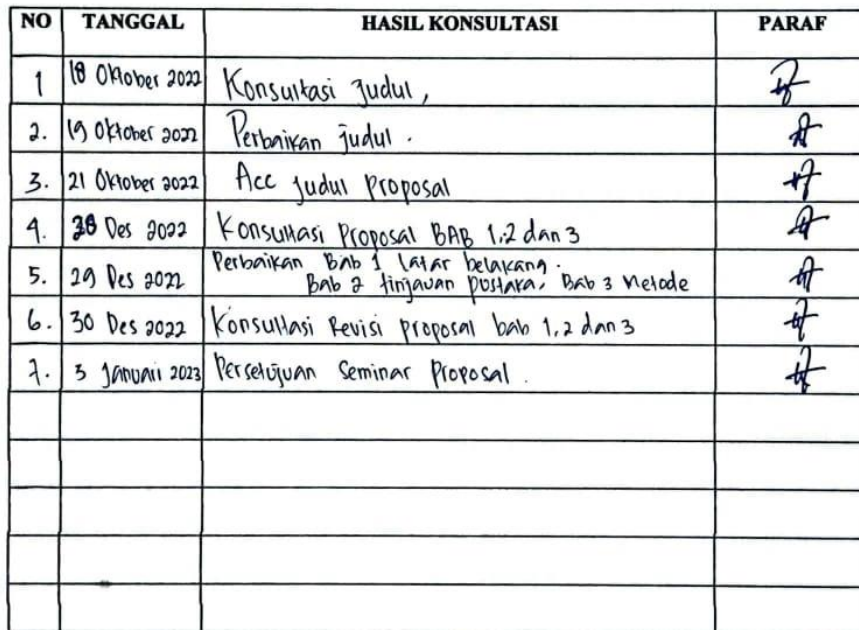 NO TANGGAL HASIL KONSULTASI PARAF
1 18 Oktober 2022 Konsultasi Judul,
2. 19 Oktober 2022 Perbaikan judul.
3. 21 Oktober 2022 Acc judul Proposal
4. 28 Des 2022 Konsultasi Proposal BAB 1,2 dan 3
5. 29 Des 2022 Perbaikan Bab 1 latar belakang.
Bab 2 tinjauan pustaka, Bab 3 Metode
6. 30 Des 2022 Konsultasi Revisi proposal bab 1,2 dan 3
7. 3 Januari 2023 Persetujuan Seminar Proposal.